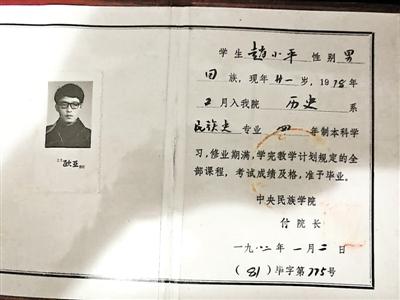 学生 赵小平 性别 男
回 族，现年 廿一 岁，1978年
2月入我院 历史 系
民族史 专业 四 年制本科学
习，修业期满，学完教学计划规定的全
部课程，考试成绩及格，准予毕业。
中央民族学院
付院长
一九八二年 一月 二日
(81)毕字第775号
欧亚